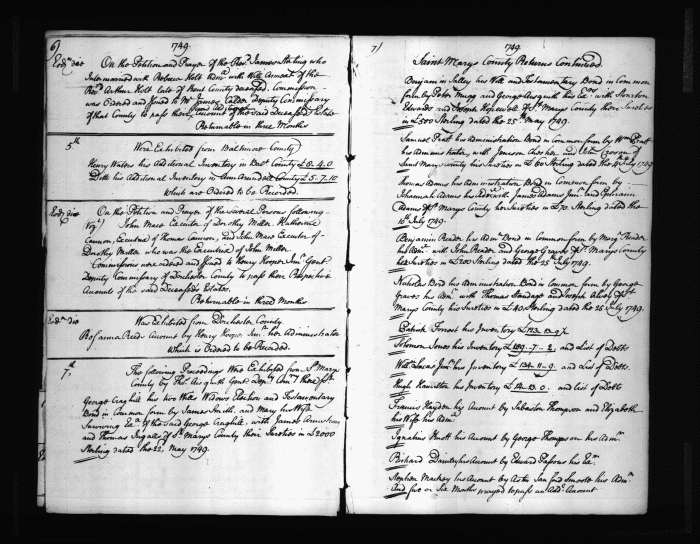 6) 1749.
Eod.m die On the Petition and Prayer of the Rev.d James Sterling who
Intermarried with Rebecca Holt Adm.x with Will Annexed of the
Rev.d Arthur Holt late of Kent County Deceased, Commission
was Ordered and Issued to Mr James Calder Deputy Commissary
of that County to pass their Account of the said Deceaseds Estate
Returnable in three Months
5th Were Exhibited from Baltimore County
Henry Waters his Additional Inventory in Balt.o County £6.4.0
Ditto his Additional Inventory in Ann Arundell County £5.7.10
Which are Ordered to be Recorded.
Eod.m die On the Petition and Prayer of the several Persons following
Viz.t) John Mace Executor of Dorothy Miller, Katherine
Cannon, Executrix of Thomas Cannon, and John Mace Executor of
Dorothy Miller who was the Executrix of John Miller.
Commissions were ordered and Issued to Henry Hooper Jun.r Gent
Deputy Commissary of Dorchester County to pass their Respective
Accounts of the said Deceaseds Estates.
Returnable in three Months.
Eod.m die Was Exhibited from Dorchester County
Rosanna Reed Account by Henry Hooper Jun.r her Administrator
Which is Ordered to be Recorded.
7th The following Proceedings Were Exhibited from S.t Marys
County by
George Craghill his two Wills Widows Election and Testamentary
Bond in Common form by James Smith, and Mary his Wife
Surviving Ex.x of the said George Craghill, with James Armstrong
and Thomas of S.t Marys County their Sureties in £2000
Sterling dated the 22d May 1749.
7) 1749.
Saint Marys County Returns Continued
Benjamin Salley his Will and Testamentary Bond in Common
form by Peter Mugg and George Aisquith his Ex.ors with Stourton
Edwards and Joseph Hopewell of S.t Marys County their Sureties
in £500 Sterling dated the 25th May 1749.
Samuel Pratt his Administration Bond in Common form by W.m Pratt
his Administrator, with and Peter
Saint Marys County his Sureties in £60 Sterling dated the July 1749
Thomas Adams his Administration Bond in Common form by
Jehamiah Adams his Adm.x with James Adams Jun.r and Ephraim
Adams of S.t Marys County her Sureties in £70. Sterling dated the
16th July 1749.
Benjamin Reeder his Adm.n Bond in Common form by Marg.t Reeder
his Adm.x with John Reeder and George Graves of S.t Marys County
her Sureties in £200 Sterling dated the 25th July 1749.
Nicholas Bond his Administration Bond in Common form by George
Graves his Adm.r with Thomas and Joseph Alvey of S.t
Marys County his Sureties in £40 Sterling dated the 25 July 1749.
Patrick Forrest his Inventory £113.13.9½
Solomon Jones his Inventory £109.7.2. and List of Debts
Will.m Lucas Jun.r his Inventory £134.11.9. and List of Debts
Hugh Hamilton his Inventory £14.13.0. and list of Debts
Francis Haydon his Account by Sabastin Thompson and Elizabeth
his Wife his Adm.x
Ignatius Hunt his Account by George Thompson his Adm.r
Richard his Account by Edward Parsons his Ex.or
Stephen Mackey his Account by his Adm.r
And five or Six Months prayed to pass an Add.l Account